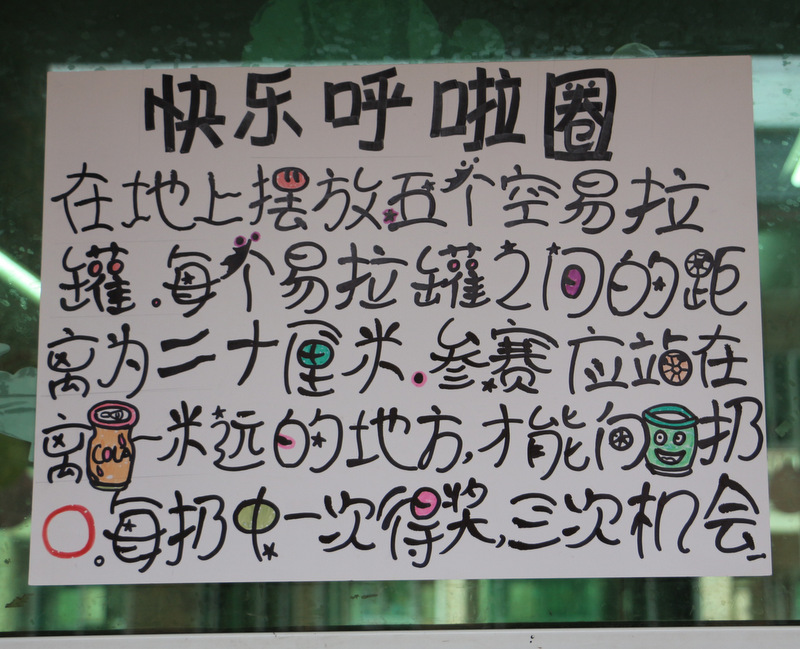 快乐呼啦圈
在地上摆放五个空易拉
罐.每个易拉罐之间的距
离为二十厘米.参赛应站在
离COLA一米远的地方,才能向扔
.每扔中一次得奖,三次机会